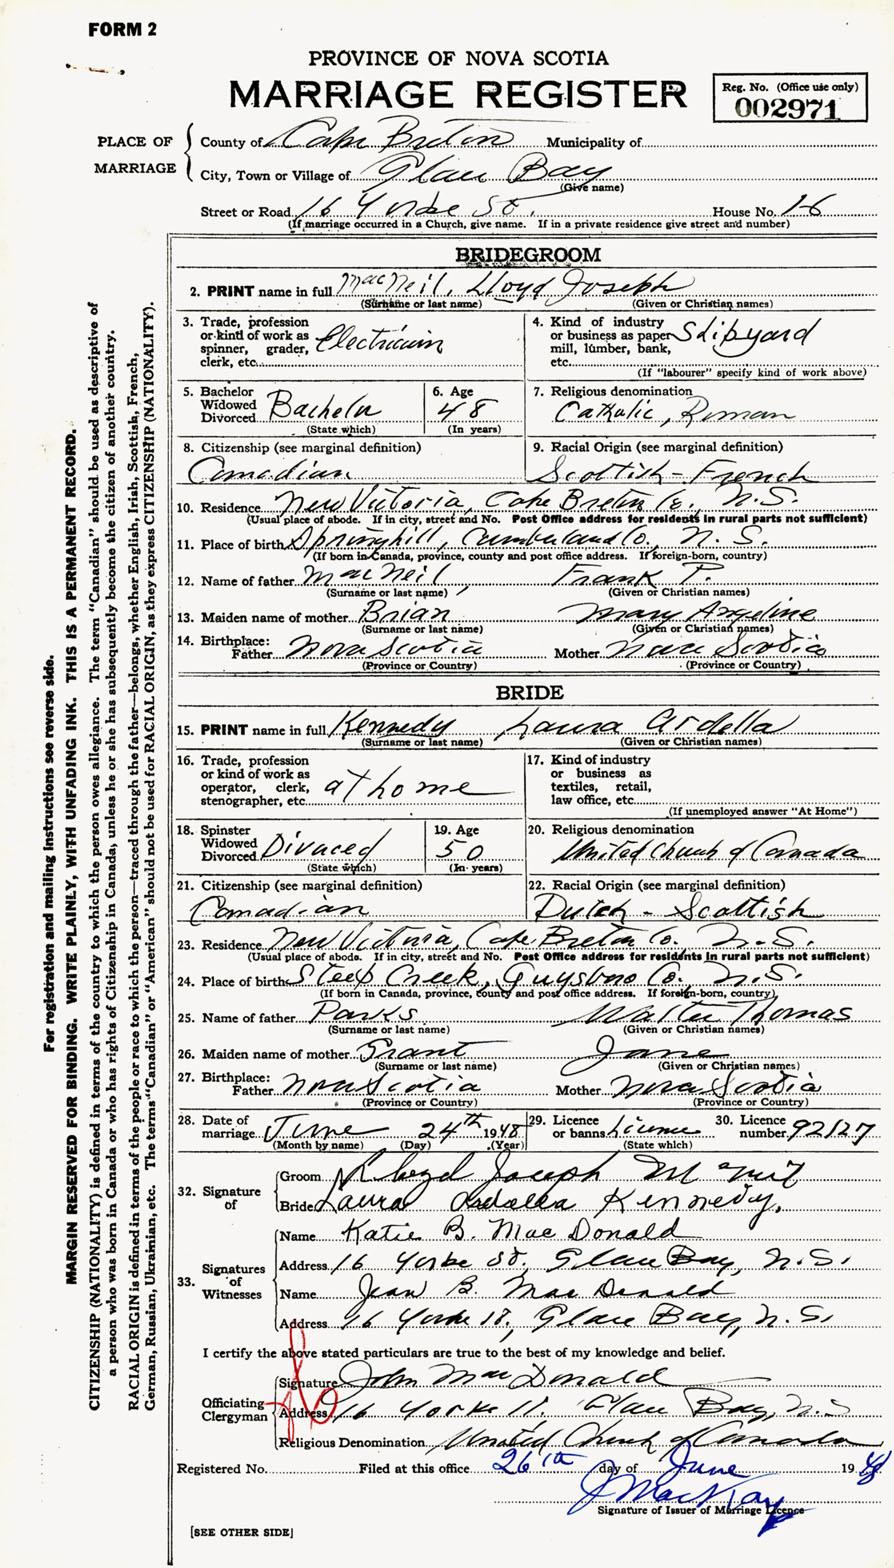 FORM 2
PROVINCE OF NOVA SCOTIA
MARRIAGE REGISTER
Reg. No. (Office use only)
002971
PLACE OF MARRIAGE
County of Cape Breton Municipality of
City, Town or Village of Glace Bay
(Give name)
Street or Road 16 Yorke St. House No. 16
(If marriage occurred in a Church, give name. If in a private residence give street and number)
BRIDEGROOM
2. PRINT name in full MacNeil, Lloyd Joseph
(Surname or last name) (Given or Christian names)
3. Trade, profession or kind of work as spinner, grader, clerk, etc. Electrician
4. Kind of industry or business as paper mill, lumber, bank, etc. Shipyard
(If "labourer" specify kind of work above)
5. Bachelor Widowed Divorced Bachelor
(State which)
6. Age 48
(In years)
7. Religious denomination
Catholic, Roman
8. Citizenship (see marginal definition)
Canadian
9. Racial Origin (see marginal definition)
Scottish-French
10. Residence New Victoria, Cape Breton Co., N.S.
(Usual place of abode. If in city, street and No. Post Office address for residents in rural parts not sufficient)
11. Place of birth Springhill, Cumberland Co., N.S.
(If born in Canada, province, county and post office address. If foreign-born, country)
12. Name of father MacNeil, Frank P.
(Surname or last name) (Given or Christian names)
13. Maiden name of mother Brian Mary Angeline
(Surname or last name) (Given or Christian names)
14. Birthplace:
Father Nova Scotia Mother Nova Scotia
(Province or Country) (Province or Country)
BRIDE
15. PRINT name in full Kennedy Laura Ardella
(Surname or last name) (Given or Christian names)
16. Trade, profession or kind of work as operator, clerk, stenographer, etc. at home
17. Kind of industry or business as textiles, retail, law office, etc.
(If unemployed answer "At Home")
18. Spinster Widowed Divorced Divorced
(State which)
19. Age 50
(In years)
20. Religious denomination
United Church of Canada
21. Citizenship (see marginal definition)
Canadian
22. Racial Origin (see marginal definition)
Dutch - Scottish
23. Residence New Victoria, Cape Breton Co., N.S.
(Usual place of abode. If in city, street and No. Post Office address for residents in rural parts not sufficient)
24. Place of birth Steep Creek, Guysboro Co., N.S.
(If born in Canada, province, county and post office address. If foreign-born, country)
25. Name of father Parks Walter Thomas
(Surname or last name) (Given or Christian names)
26. Maiden name of mother Grant Jane
(Surname or last name) (Given or Christian names)
27. Birthplace:
Father Nova Scotia Mother Nova Scotia
(Province or Country) (Province or Country)
28. Date of marriage June 24th 1948
(Month by name) (Day) (Year)
29. Licence or banns Licence
(State which)
30. Licence number 92127
32. Signature of
Groom Lloyd Joseph McNeil
Bride Laura Ardella Kennedy,
33. Signatures of Witnesses
Name Katie B. MacDonald
Address 16 Yorke St. Glace Bay, N.S.
Name Jean B. MacDonald
Address 16 Yorke St., Glace Bay, N.S.
I certify the above stated particulars are true to the best of my knowledge and belief.
Officiating Clergyman
Signature John MacDonald
Address 16 Yorke St. Glace Bay, N.S
Religious Denomination United Church of Canada
Registered No. Filed at this office 26th day of June 1948
J MacKay
Signature of Issuer of Marriage Licence
[SEE OTHER SIDE]
For registration and mailing instructions see reverse side.
MARGIN RESERVED FOR BINDING. WRITE PLAINLY, WITH UNFADING INK. THIS IS A PERMANENT RECORD.
CITIZENSHIP (NATIONALITY) is defined in terms of the country to which the person owes allegiance. The term "Canadian" should be used as descriptive of
a person who was born in Canada or who has rights of Citizenship in Canada, unless he or she has subsequently become the citizen of another country.
RACIAL ORIGIN is defined in terms of the people or race to which the person—traced through the father—belongs, whether English, Irish, Scottish, French,
German, Russian, Ukrainian, etc. The terms "Canadian" or "American" should not be used for RACIAL ORIGIN, as they express CITIZENSHIP (NATIONALITY).